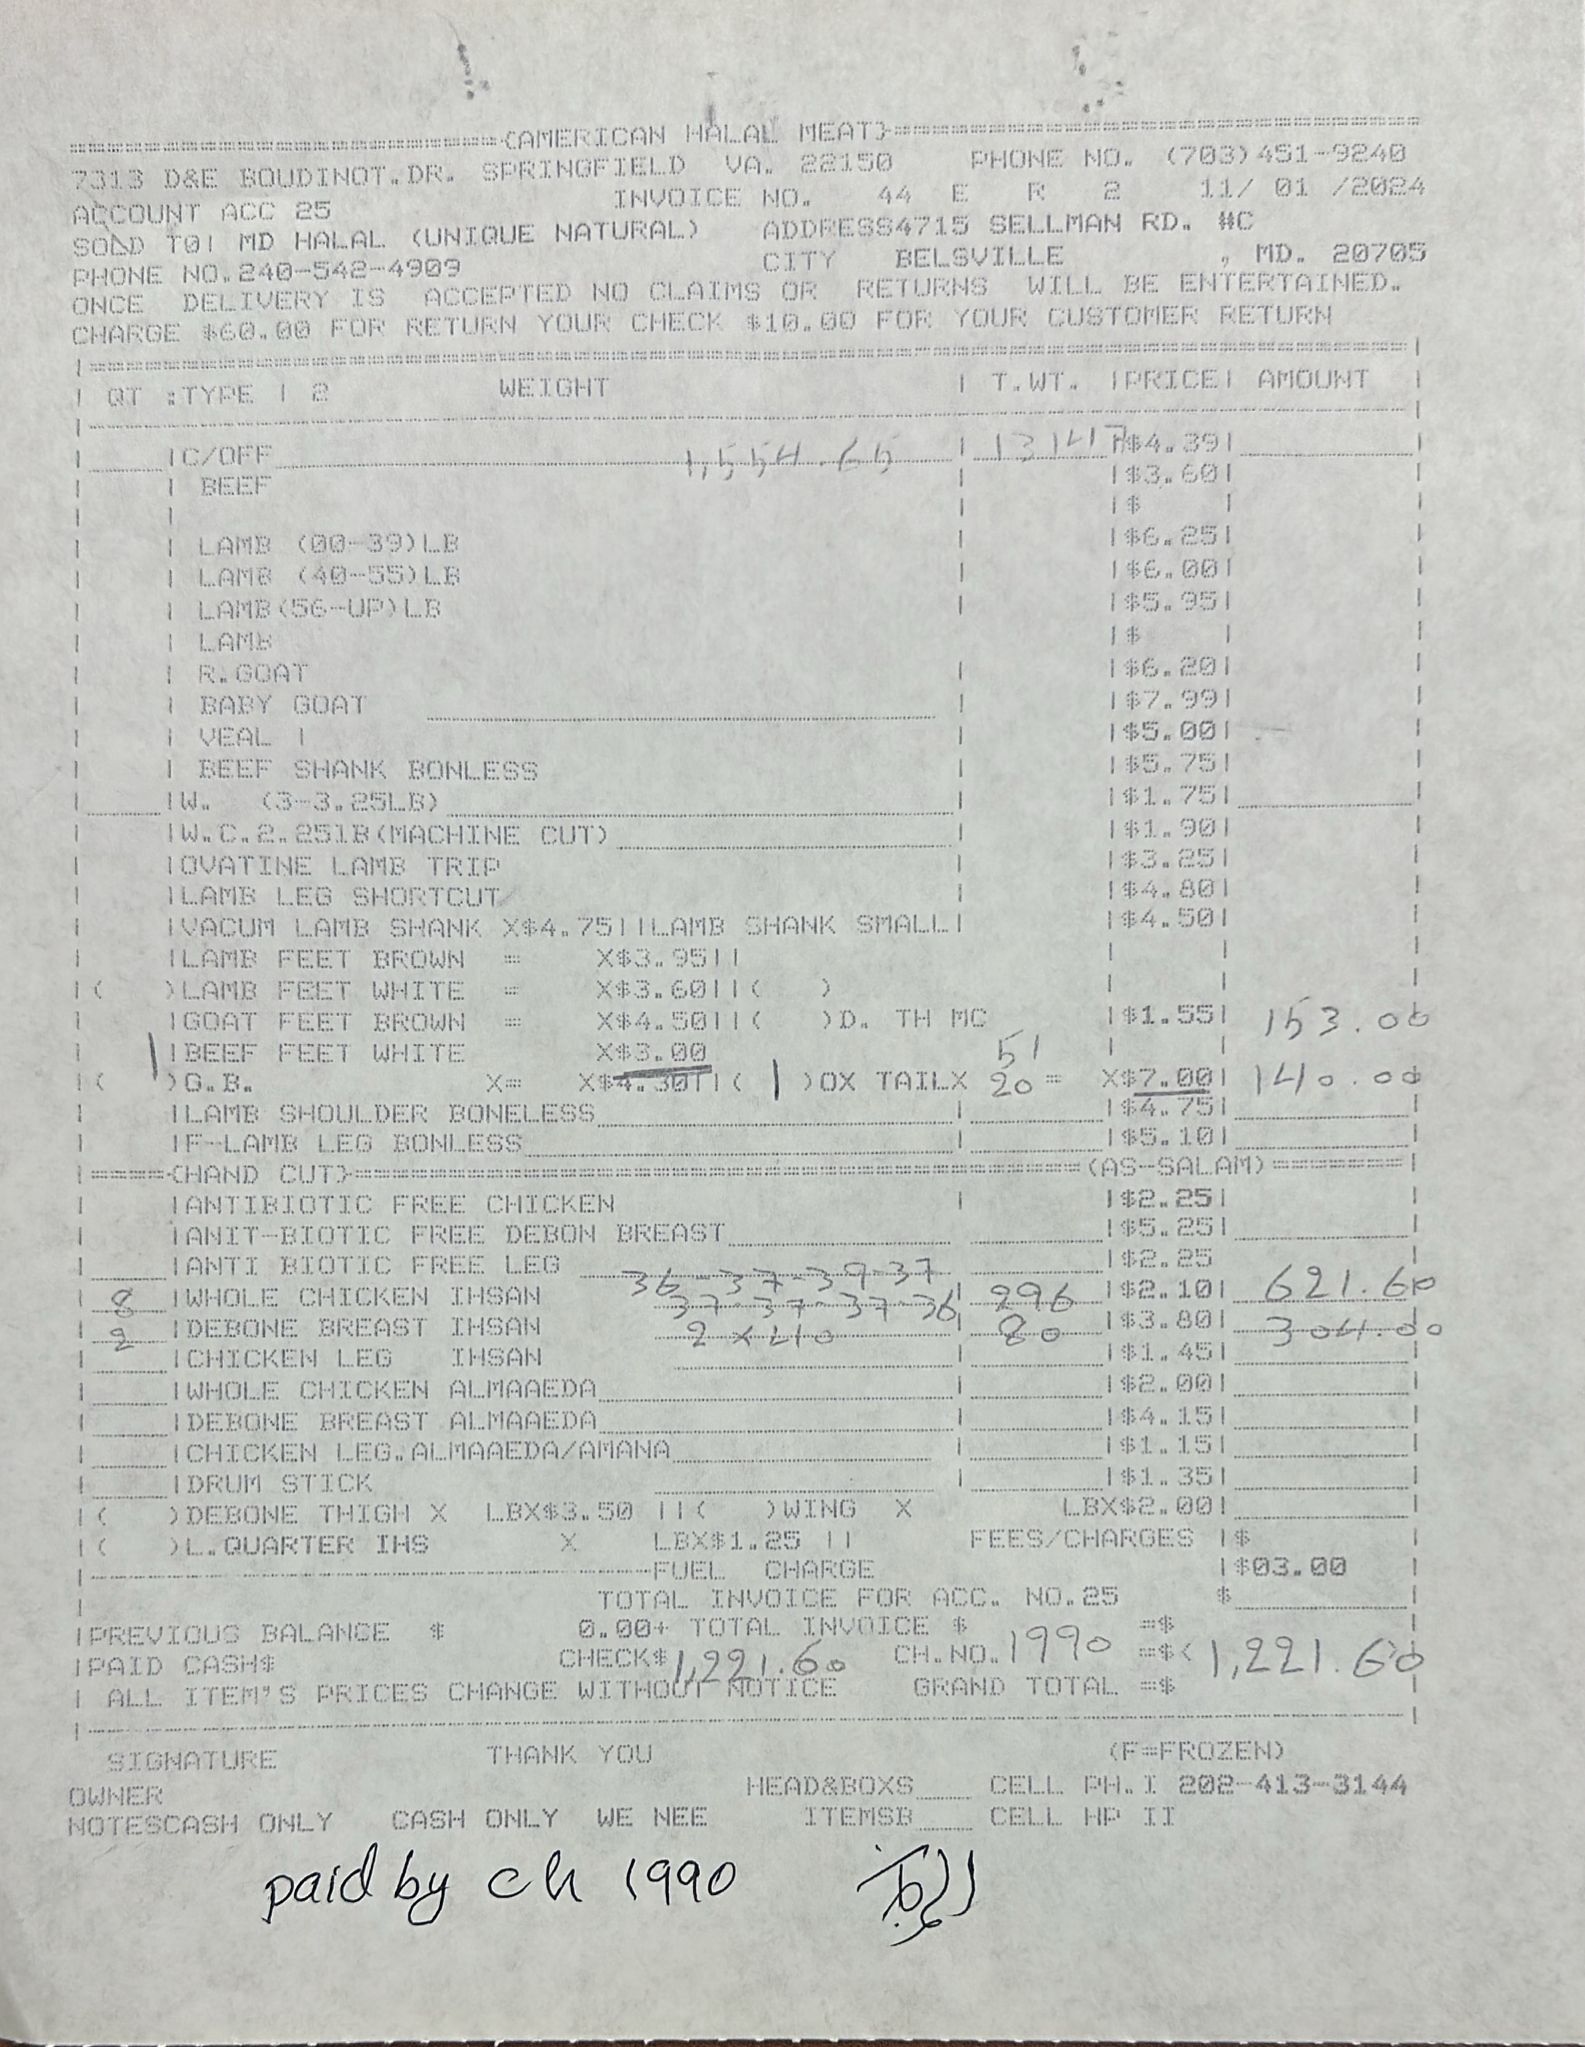 (AMERICAN HALAL MEAT)
7313 D&E BOUDINOT.DR. SPRINGFIELD VA. 22150 PHONE NO. (703)451-9240
INVOICE NO. 44 E R 2 11/ 01 /2024
ACCOUNT ACC 25
SOLD TO| MD HALAL (UNIQUE NATURAL) ADDRESS4715 SELLMAN RD. #C
PHONE NO.240-542-4909 CITY BELSVILLE , MD. 20705
ONCE DELIVERY IS ACCEPTED NO CLAIMS OR RETURNS WILL BE ENTERTAINED.
CHARGE $60.00 FOR RETURN YOUR CHECK $10.00 FOR YOUR CUSTOMER RETURN
| QT :TYPE | 2 WEIGHT | T.WT. |PRICE| AMOUNT |
| |C/OFF 1,554.65 | 13147 |$4.39| |
| | BEEF | |$3.60| |
| | |$ | |
| | LAMB (00-39)LB | |$6.25| |
| | LAMB (40-55)LB | |$6.00| |
| | LAMB(56-UP)LB | |$5.95| |
| | LAMB |$ | |
| | R.GOAT | |$6.20| |
| | BABY GOAT | |$7.99| |
| | VEAL | | |$5.00| |
| | BEEF SHANK BONLESS | |$5.75| |
| |W. (3-3.25LB) | |$1.75| |
| |W.C.2.25LB(MACHINE CUT) | |$1.90| |
| |OVATINE LAMB TRIP | |$3.25| |
| |LAMB LEG SHORTCUT | |$4.80| |
| |VACUM LAMB SHANK X$4.75||LAMB SHANK SMALL| |$4.50| |
| |LAMB FEET BROWN = X$3.95|| | | |
|( )LAMB FEET WHITE = X$3.60||( ) | | |
| |GOAT FEET BROWN = X$4.50||( )D. TH MC |$1.55| 153.00
| 1 |BEEF FEET WHITE X$3.00 51 | | |
|( )G.B. X= X$4.30||( 1 )OX TAILX 20 = X$7.00| 140.00
| |LAMB SHOULDER BONELESS | |$4.75| |
| |F-LAMB LEG BONLESS | |$5.10| |
|====(HAND CUT)====(AS-SALAM)=======|
| |ANTIBIOTIC FREE CHICKEN | |$2.25| |
| |ANIT-BIOTIC FREE DEBON BREAST |$5.25| |
| |ANTI BIOTIC FREE LEG 36-37-39-37 |$2.25 |
| 8 |WHOLE CHICKEN IHSAN 37-37-37-36 | 296 |$2.10| 621.60
| 2 |DEBONE BREAST IHSAN 2 x 40 | 80 |$3.80| 304.00
| |CHICKEN LEG IHSAN | |$1.45| |
| |WHOLE CHICKEN ALMAAEDA | |$2.00| |
| |DEBONE BREAST ALMAAEDA |$4.15| |
| |CHICKEN LEG.ALMAAEDA/AMANA |$1.15| |
| |DRUM STICK | |$1.35| |
|( )DEBONE THIGH X LBX$3.50 ||( )WING X LBX$2.00| |
|( )L.QUARTER IHS X LBX$1.25 || FEES/CHARGES |$ |
|FUEL CHARGE |$03.00 |
| TOTAL INVOICE FOR ACC. NO.25 $ |
|PREVIOUS BALANCE $ 0.00+ TOTAL INVOICE $ =$ |
|PAID CASH$ CHECK$ 1,221.60 CH.NO. 1990 =$< 1,221.60
| ALL ITEM'S PRICES CHANGE WITHOUT NOTICE GRAND TOTAL =$ |
SIGNATURE THANK YOU (F=FROZEN)
OWNER HEAD&BOXS CELL PH.I 202-413-3144
NOTESCASH ONLY CASH ONLY WE NEE ITEMSB CELL HP II
paid by ch 1990